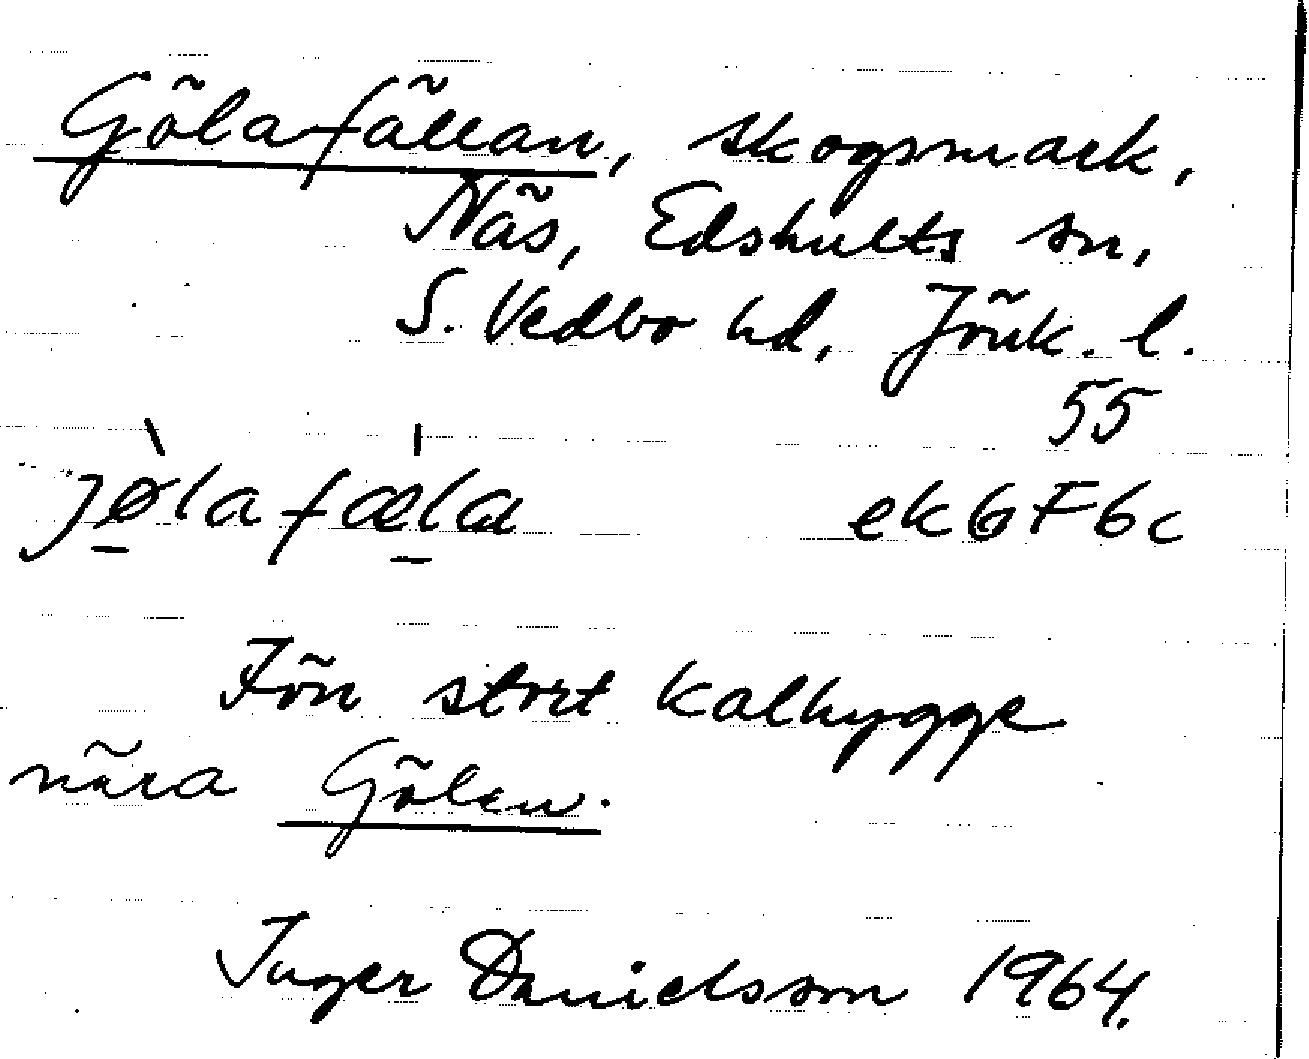 Gölafällan, skogsmark,
Näs, Edshults sn,
S. Vedbo hd, Jönk. l.
55
jø̀lafæla ek6F6c
Förr stort kalhygge
nära Gölen.
Inger Danielsson 1964.